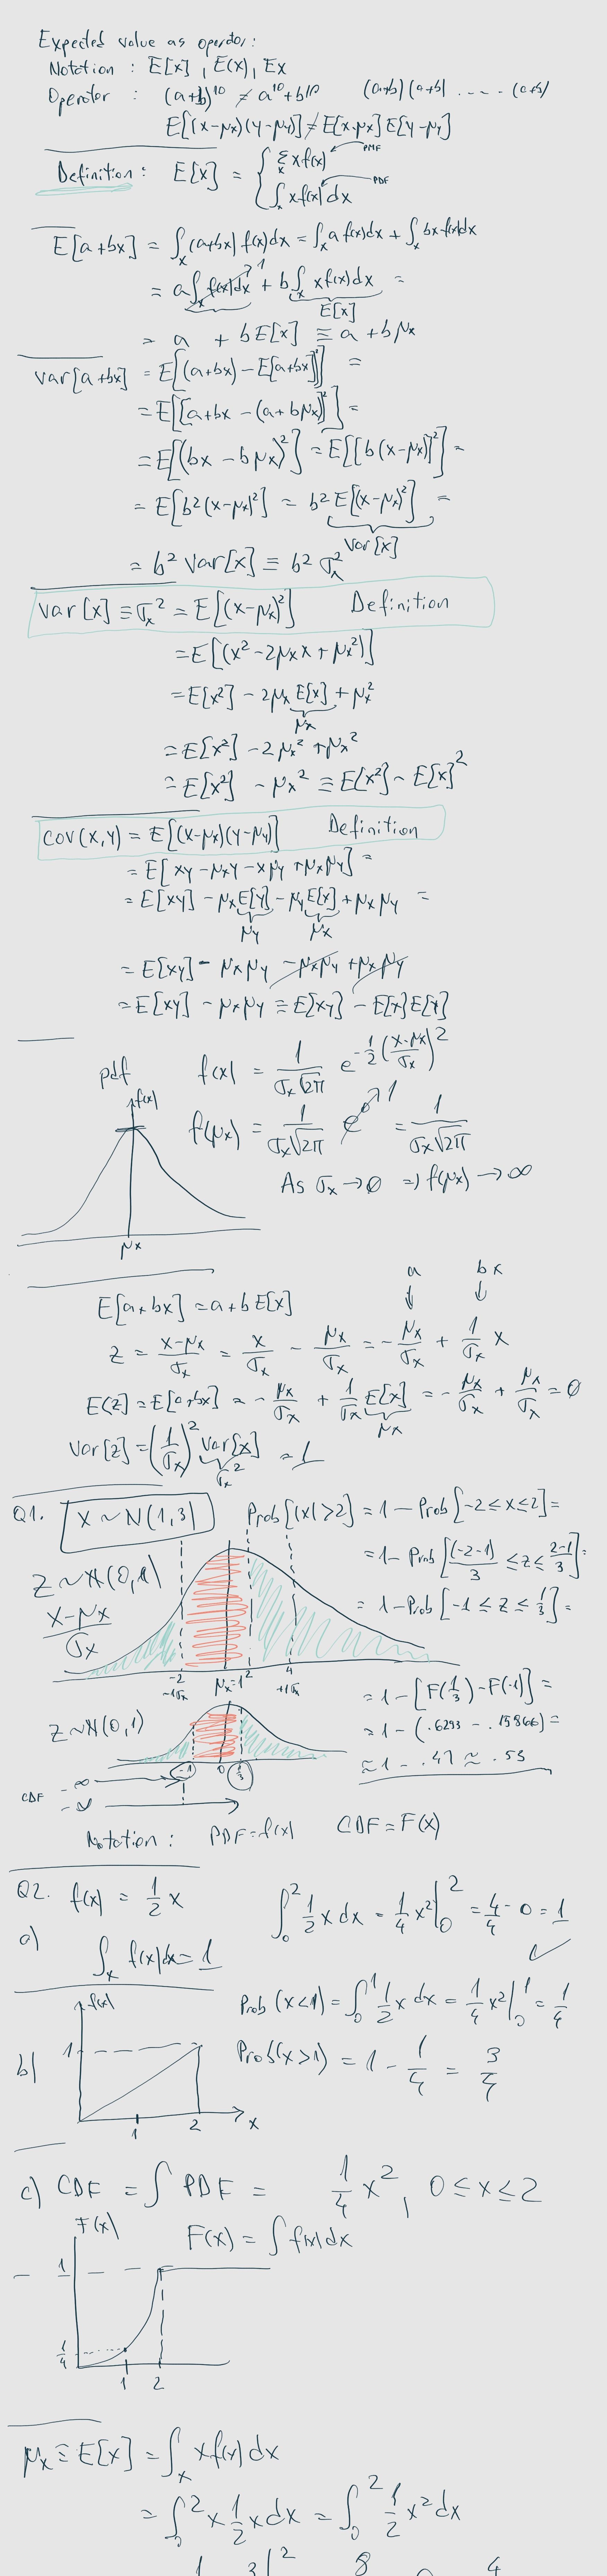 Expected value as operator:
Notation : E[x] , E(x), Ex
Operator : (a+b)^10 ≠ a^10 + b^10 (a+b) (a+b) ..... (a+b)
E[(x-μx)(y-μy)] ≠ E[x-μx] E[y-μy]
Definition: E[x] = { Σx x f(x) PMF
∫x x f(x) dx PDF
E[a+bx] = ∫x (a+bx) f(x)dx = ∫x a f(x)dx + ∫x bx f(x)dx
= a ∫x f(x)dx 1 + b ∫x x f(x) dx =
E[x]
= a + b E[x] ≡ a + b μx
var[a+bx] = E[((a+bx) - E[a+bx])²] =
= E[[a+bx - (a+bμx)]²] =
= E[(bx - bμx)²] = E[[b(x-μx)]²] =
= E[b²(x-μx)²] = b² E[(x-μx)²] =
Var[x]
= b² Var[x] ≡ b² σx²
Var[x] ≡ σx² = E[(x-μx)²] Definition
= E[(x² - 2μx x + μx²)]
= E[x²] - 2μx E[x] + μx²
μx
= E[x²] - 2μx² + μx²
= E[x²] - μx² ≡ E[x²] - E[x]²
cov(x,y) = E[(x-μx)(y-μy)] Definition
= E[xy - μxy - xμy + μxμy] =
= E[xy] - μx E[y] - μy E[x] + μxμy =
μy μx
= E[xy] - μxμy - μxμy + μxμy
= E[xy] - μxμy ≡ E[xy] - E[x]E[x]
pdf f(x) = 1/(σx√2π) e^(-1/2((x-μx)/σx)²)
f(x)
f(μx) = 1/(σx√2π) e^0 1 = 1/(σx√2π)
As σx → 0 ⇒ f(μx) → ∞
μx
a bx
E[a+bx] = a+b E[x] ↓ ↓
z = (x-μx)/σx = x/σx - μx/σx = -μx/σx + 1/σx x
E[z] = E[a+bx] = -μx/σx + 1/σx E[x] = -μx/σx + μx/σx = 0
μx
Var[z] = (1/σx)² Var[x] = 1
σx²
Q1. X ~ N(1,3) Prob[|x|>2] = 1 - Prob[-2 ≤ x ≤ 2] =
= 1 - Prob[(-2-1)/3 ≤ z ≤ (2-1)/3] =
Z ~ N(0,1)
(x-μx)/σx
= 1 - Prob[-1 ≤ z ≤ 1/3] =
-2 μx=1 2 4
-1σx +1σx
= 1 - [F(1/3) - F(-1)] =
Z ~ N(0,1) = 1 - (.6293 - .15866) =
≈ 1 - .47 ≈ .53
-1 0 1/3
CDF -∞
-∞
Notation : PDF = f(x) CDF = F(x)
Q2. f(x) = 1/2 x ∫₀² 1/2 x dx = 1/4 x² |₀² = 4/4 - 0 = 1 ✓
a) ∫x f(x)dx = 1
f(x) Prob (x<1) = ∫₀¹ 1/2 x dx = 1/4 x² |₀¹ = 1/4
b) 1 Prob(x>1) = 1 - 1/4 = 3/4
1 2 x
c) CDF = ∫ PDF = 1/4 x² , 0 ≤ x ≤ 2
F(x) F(x) = ∫ f(x)dx
1
1/4
1 2
μx ≡ E[x] = ∫x x f(x) dx
= ∫₀² x 1/2 x dx = ∫₀² 1/2 x² dx